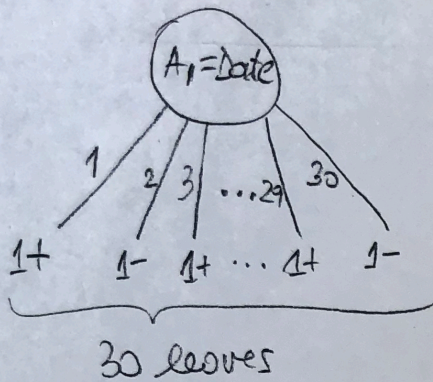 A₁=Date
1 2 3 ...29 30
1+ 1- 1+ ... 1+ 1-
30 leoves